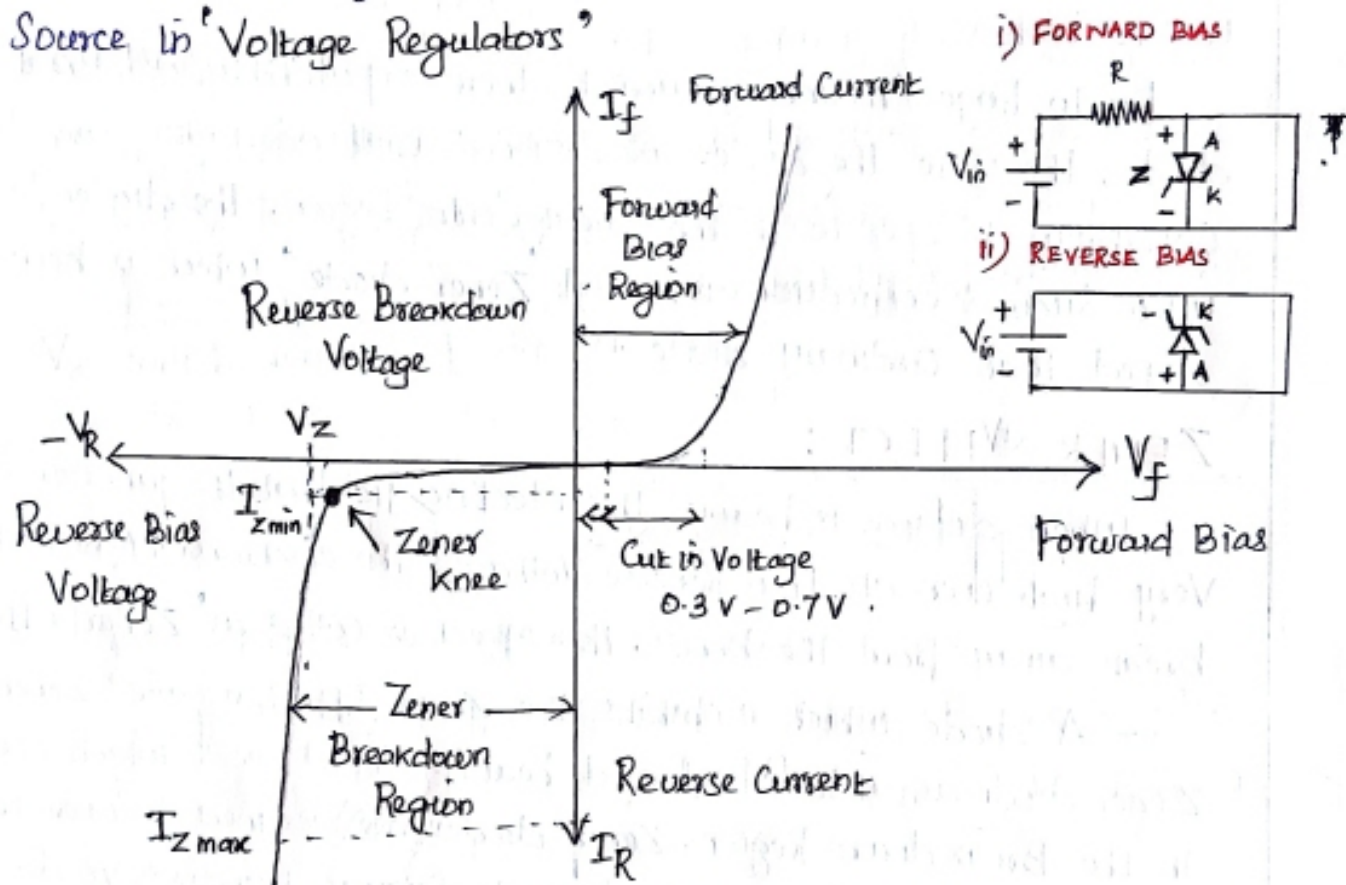 Source in 'Voltage Regulators'
i) FORWARD BIAS
R
Vin
+
-
+
A
Z
K
-
ii) REVERSE BIAS
Vin
+
-
-
K
+
A
If
Forward Current
Forward
Bias
Region
Reverse Breakdown
Voltage
-VR
VZ
Vf
Forward Bias
IZmin
Reverse Bias
Voltage
Zener
Knee
Cut in Voltage
0.3 V - 0.7 V .
Zener
Breakdown
Region
Reverse Current
IZ max
IR